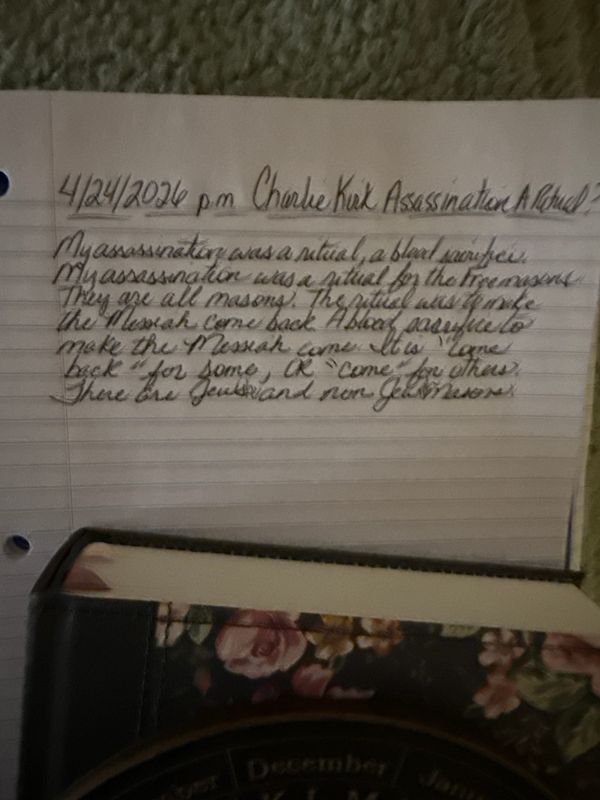 4/24/2026 pm Charlie Kirk Assassination A Ritual?
My assassination was a ritual, a blood sacrifice.
My assassination was a ritual for the Freemasons.
They are all masons. The ritual was to make
the Messiah come back. A blood sacrifice to
make the Messiah come. It is "come
back" for some, OR "come" for others.
There are Jewish and non Jew Masons.
December
K L M